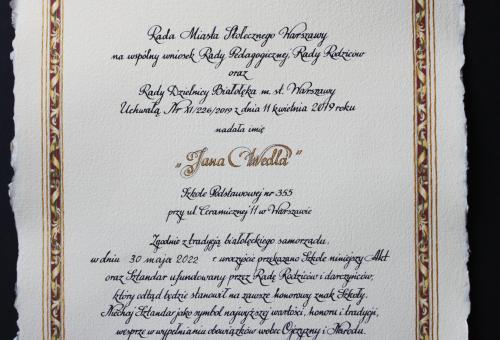 Rada Miasta Stołecznego Warszawy
na wspólny wniosek Rady Pedagogicznej, Rady Rodziców
oraz
Rady Dzielnicy Białołęka m. st. Warszawy
Uchwałą Nr XI/226/2019 z dnia 11 kwietnia 2019 roku
nadała imię
„Jana Wedla"
Szkole Podstawowej nr 355
przy ul. Ceramicznej 11 w Warszawie
Zgodnie z tradycją białołęckiego samorządu,
w dniu 30 maja 2022 r uroczyście przekazano Szkole niniejszy Akt
oraz Sztandar ufundowany przez Radę Rodziców i darczyńców,
który odtąd będzie stanowił na zawsze honorowy znak Szkoły.
Niechaj Sztandar jako symbol najwyższej wartości, honoru i tradycji,
wesprze w wypełnianiu obowiązków wobec Ojczyzny i Narodu.